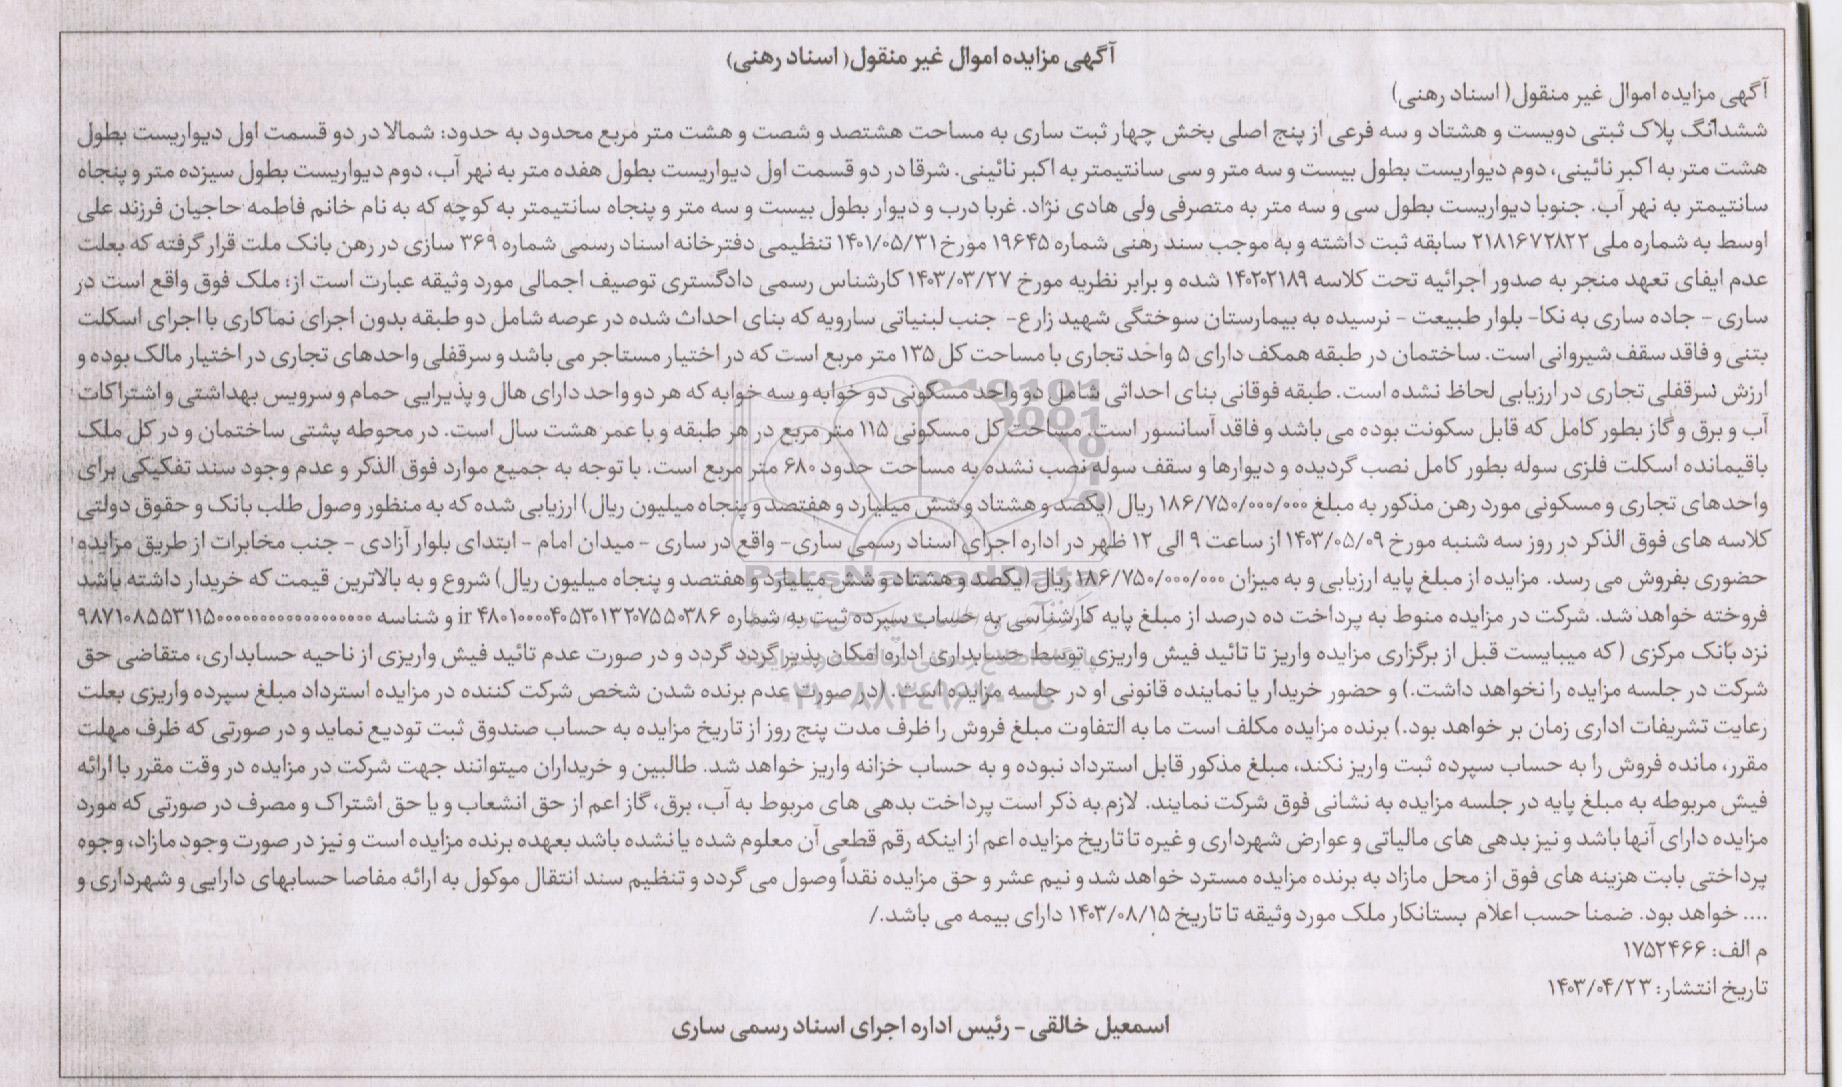 آگهی مزایده اموال غیر منقول( اسناد رهنی)
آگهی مزایده اموال غیر منقول( اسناد رهنی)
ششدانگ پلاک ثبتی دویست و هشتاد و سه فرعی از پنج اصلی بخش چهار ثبت ساری به مساحت هشتصد و شصت و هشت متر مربع محدود به حدود: شمالا در دو قسمت اول دیواریست بطول
هشت متر به اکبر نائینی، دوم دیواریست بطول بیست و سه متر و سی سانتیمتر به اکبر نائینی. شرقا در دو قسمت اول دیواریست بطول هفده متر به نهر آب، دوم دیواریست بطول سیزده متر و پنجاه
سانتیمتر به نهر آب. جنوبا دیواریست بطول سی و سه متر به متصرفی ولی هادی نژاد. غربا درب و دیوار بطول بیست و سه متر و پنجاه سانتیمتر به کوچه که به نام خانم فاطمه حاجیان فرزند علی
اوسط به شماره ملی ۲۱۸۱۶۷۲۸۲۲ سابقه ثبت داشته و به موجب سند رهنی شماره ۱۹۶۴۵ مورخ ۱۴۰۱/۰۵/۳۱ تنظیمی دفترخانه اسناد رسمی شماره ۳۶۹ سازی در رهن بانک ملت قرار گرفته که بعلت
عدم ایفای تعهد منجر به صدور اجرائیه تحت کلاسه ۱۴۰۲۰۲۱۸۹ شده و برابر نظریه مورخ ۱۴۰۳/۰۳/۲۷ کارشناس رسمی دادگستری توصیف اجمالی مورد وثیقه عبارت است از: ملک فوق واقع است در
ساری - جاده ساری به نکا- بلوار طبیعت - نرسیده به بیمارستان سوختگی شهید زارع- جنب لبنیاتی سارویه که بنای احداث شده در عرصه شامل دو طبقه بدون اجرای نماکاری با اجرای اسکلت
بتنی و فاقد سقف شیروانی است. ساختمان در طبقه همکف دارای ۵ واحد تجاری با مساحت کل ۱۳۵ متر مربع است که در اختیار مستاجر می باشد و سرقفلی واحدهای تجاری در اختیار مالک بوده و
ارزش سرقفلی تجاری در ارزیابی لحاظ نشده است. طبقه فوقانی بنای احداثی شامل دو واحد مسکونی دو خوابه و سه خوابه که هر دو واحد دارای هال و پذیرایی حمام و سرویس بهداشتی و اشتراکات
آب و برق و گاز بطور کامل که قابل سکونت بوده می باشد و فاقد آسانسور است. مساحت کل مسکونی ۱۱۵ متر مربع در هر طبقه و با عمر هشت سال است. در محوطه پشتی ساختمان و در کل ملک
باقیمانده اسکلت فلزی سوله بطور کامل نصب گردیده و دیوارها و سقف سوله نصب نشده به مساحت حدود ۶۸۰ متر مربع است. با توجه به جمیع موارد فوق الذکر و عدم وجود سند تفکیکی برای
واحدهای تجاری و مسکونی مورد رهن مذکور به مبلغ ۱۸۶/۷۵۰/۰۰۰/۰۰۰ ریال (یکصد و هشتاد و شش میلیارد و هفتصد و پنجاه میلیون ریال) ارزیابی شده که به منظور وصول طلب بانک و حقوق دولتی
کلاسه های فوق الذکر در روز سه شنبه مورخ ۱۴۰۳/۰۵/۰۹ از ساعت ۹ الی ۱۲ ظهر در اداره اجرای اسناد رسمی ساری- واقع در ساری - میدان امام - ابتدای بلوار آزادی - جنب مخابرات از طریق مزایده
حضوری بفروش می رسد. مزایده از مبلغ پایه ارزیابی و به میزان ۱۸۶/۷۵۰/۰۰۰/۰۰۰ ریال (یکصد و هشتاد و شش میلیارد و هفتصد و پنجاه میلیون ریال) شروع و به بالاترین قیمت که خریدار داشته باشد
فروخته خواهد شد. شرکت در مزایده منوط به پرداخت ده درصد از مبلغ پایه کارشناسی به حساب سپرده ثبت به شماره ir ۴۸۰۱۰۰۰۰۴۰۵۳۰۱۳۲۰۷۵۵۰۳۸۶ و شناسه
نزد بانک مرکزی ( که میبایست قبل از برگزاری مزایده واریز تا تائید فیش واریزی توسط حسابداری اداره امکان پذیر گردد گردد و در صورت عدم تائید فیش واریزی از ناحیه حسابداری، متقاضی حق
شرکت در جلسه مزایده را نخواهد داشت.) و حضور خریدار یا نماینده قانونی او در جلسه مزایده است. (در صورت عدم برنده شدن شخص شرکت کننده در مزایده استرداد مبلغ سپرده واریزی بعلت
رعایت تشریفات اداری زمان بر خواهد بود.) برنده مزایده مکلف است ما به التفاوت مبلغ فروش را ظرف مدت پنج روز از تاریخ مزایده به حساب صندوق ثبت تودیع نماید و در صورتی که ظرف مهلت
مقرر، مانده فروش را به حساب سپرده ثبت واریز نکند، مبلغ مذکور قابل استرداد نبوده و به حساب خزانه واریز خواهد شد. طالبین و خریداران میتوانند جهت شرکت در مزایده در وقت مقرر با ارائه
فیش مربوطه به مبلغ پایه در جلسه مزایده به نشانی فوق شرکت نمایند. لازم به ذکر است پرداخت بدهی های مربوط به آب، برق، گاز اعم از حق انشعاب و یا حق اشتراک و مصرف در صورتی که مورد
مزایده دارای آنها باشد و نیز بدهی های مالیاتی و عوارض شهرداری و غیره تا تاریخ مزایده اعم از اینکه رقم قطعی آن معلوم شده یا نشده باشد بعهده برنده مزایده است و نیز در صورت وجود مازاد، وجوه
پرداختی بابت هزینه های فوق از محل مازاد به برنده مزایده مسترد خواهد شد و نیم عشر و حق مزایده نقداً وصول می گردد و تنظیم سند انتقال موکول به ارائه مفاصا حسابهای دارایی و شهرداری و
.... خواهد بود. ضمنا حسب اعلام بستانکار ملک مورد وثیقه تا تاریخ ۱۴۰۳/۰۸/۱۵ دارای بیمه می باشد./
م الف: ۱۷۵۲۴۶۶
تاریخ انتشار: ۱۴۰۳/۰۴/۲۳
اسمعیل خالقی - رئیس اداره اجرای اسناد رسمی ساری
ParsNamadData